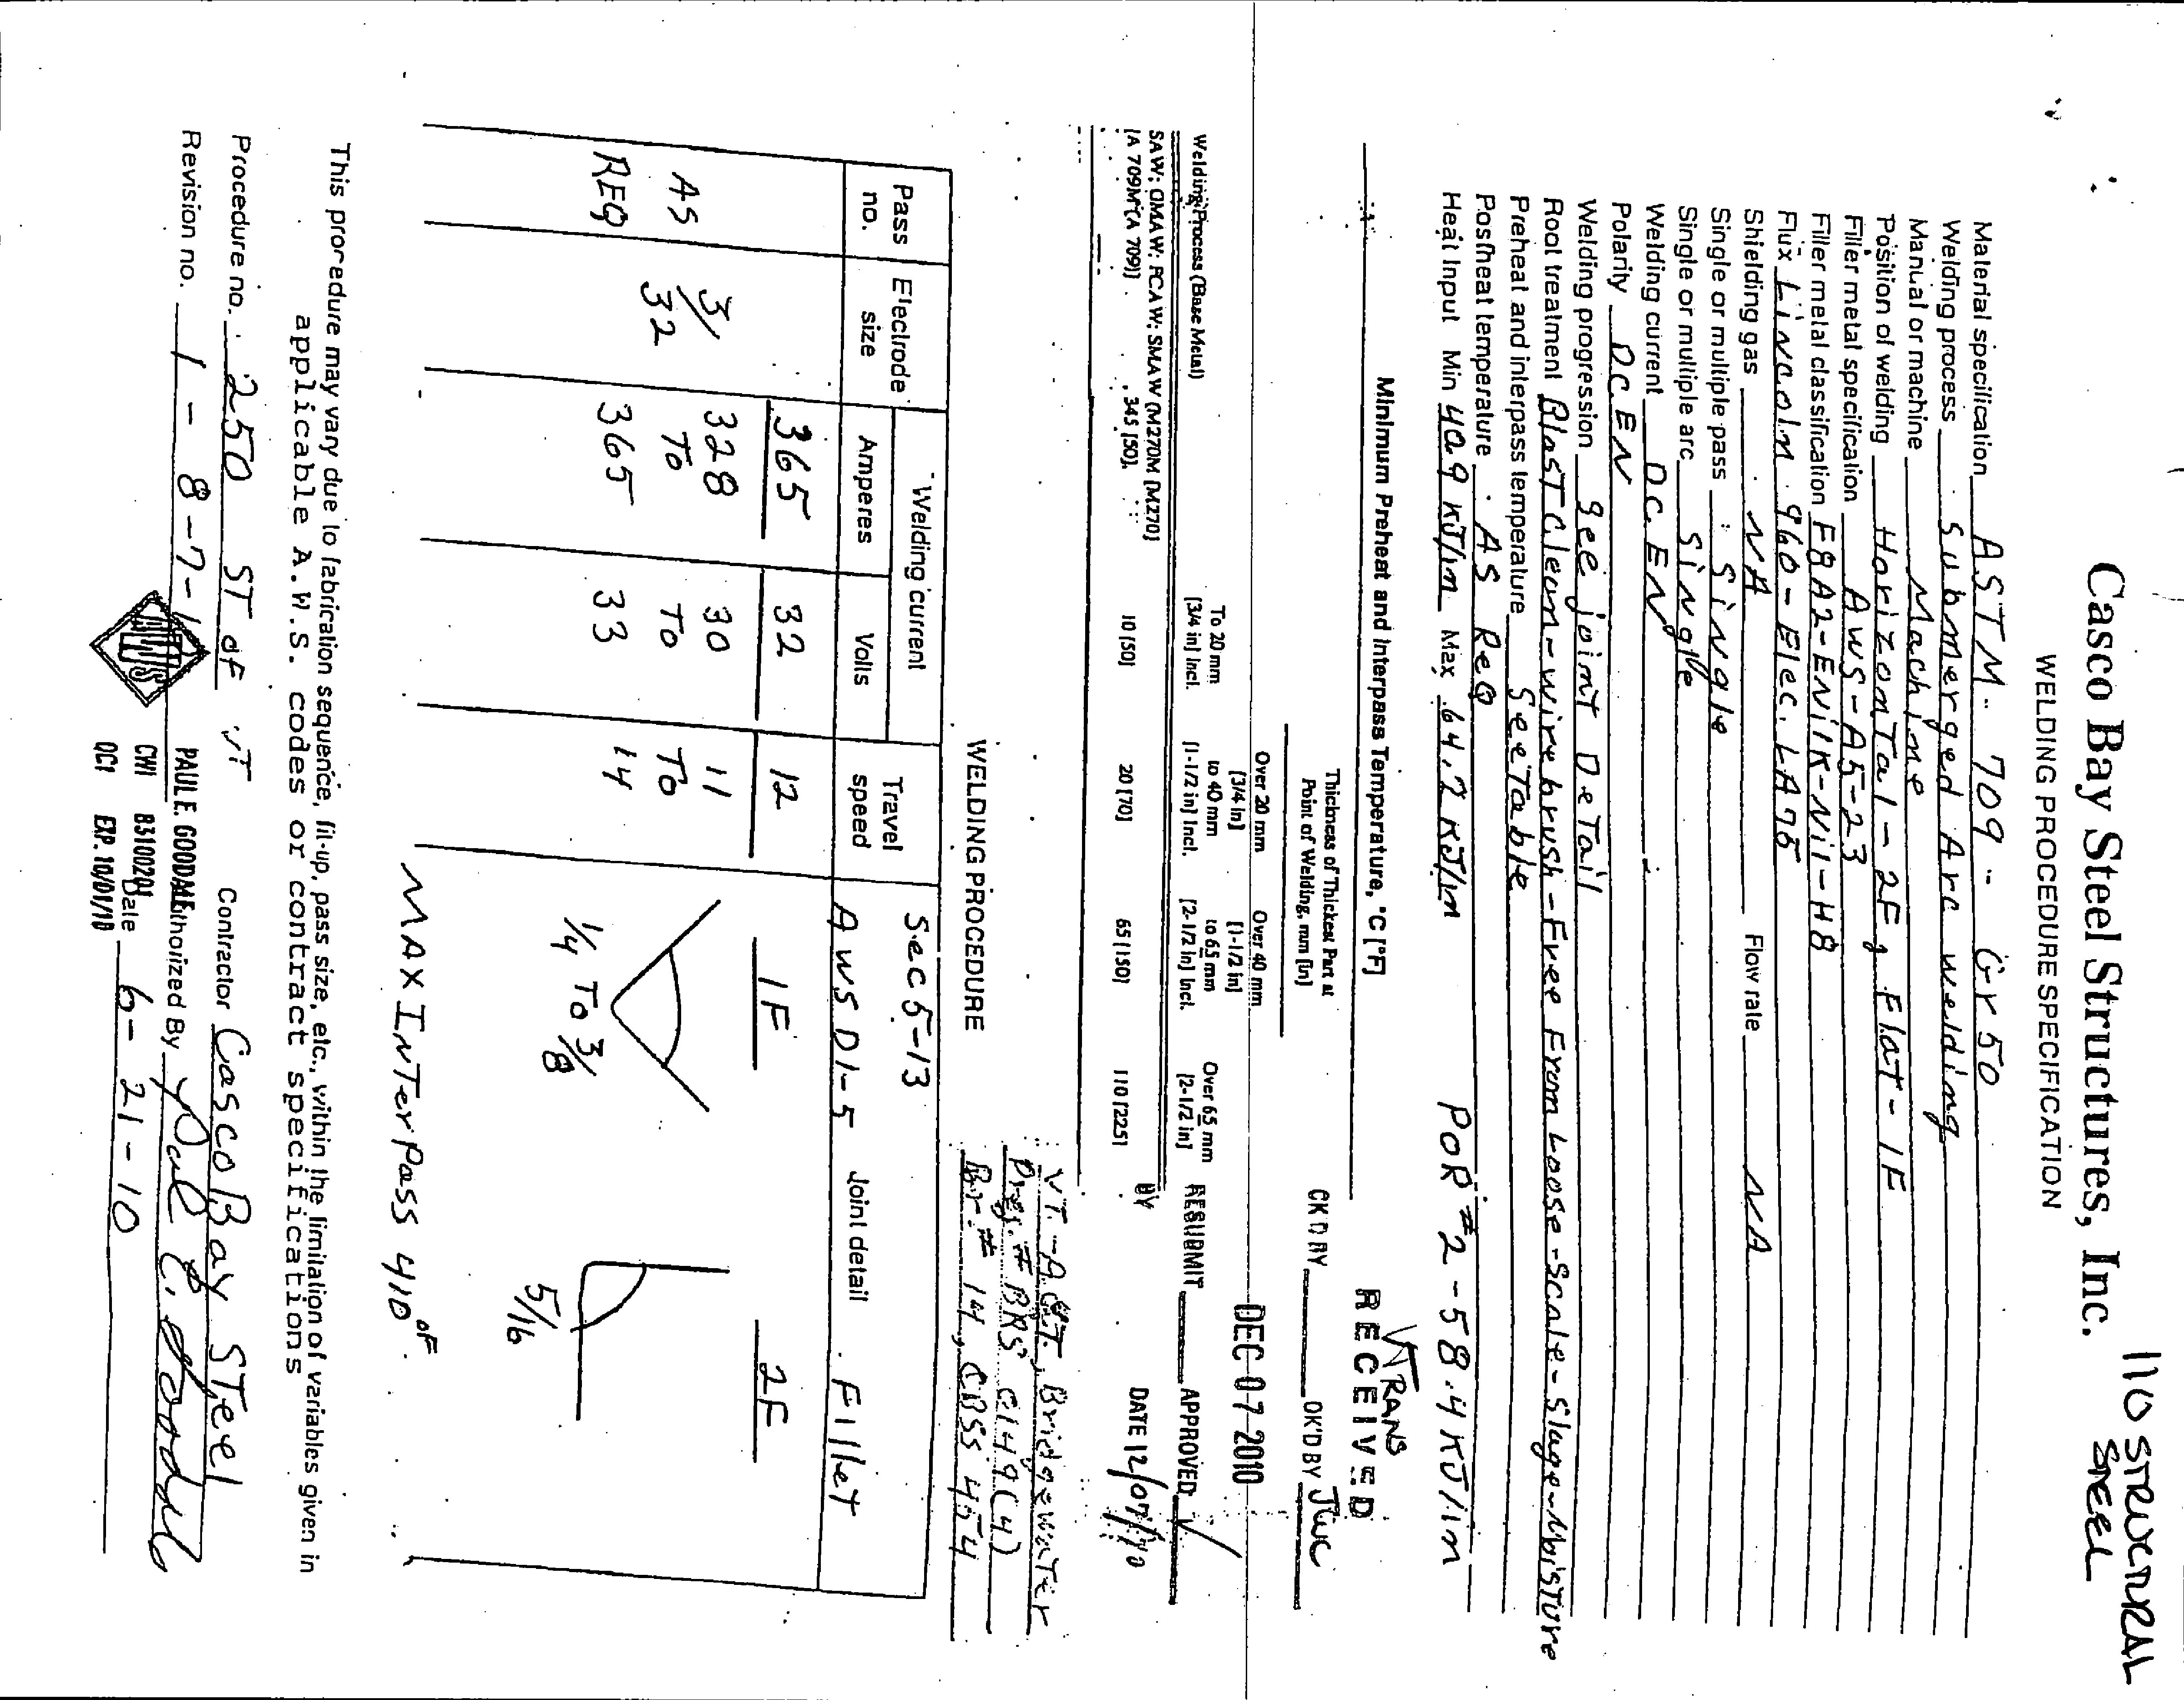 1110 STRUCTURAL
STEEL
Casco Bay Steel Structures, Inc.
WELDING PROCEDURE SPECIFICATION
Material specification ASTM - 709 - Gr 50
Welding process Submerged Arc welding
Manual or machine Machine
Position of welding Horizontal - 2F, Flat - 1F
Filler metal specification AWS-A5-23
Filler metal classification F8A2-ENi1K-Ni1-H8
Flux Lincoln 960 - Elec. LA75
Shielding gas NA Flow rate NA
Single or multiple pass Single
Single or multiple arc Single
Welding current DC.EN
Polarity DCEN
Welding progression See joint Detail
Root treatment Blast Clean-wire brush-Free From Loose-Scale-Slage-Moisture
Preheat and interpass temperature See Table
Postheat temperature AS ReQ
Heat Input Min 40.9 KJ/in Max 64.2 KJ/in PQR #2-58.4 KJ/in
VTRANS
RECEIVED
CK'D BY OK'D BY JWC
DEC 07 2010
RESUBMIT APPROVED ✓
BY DATE 12/07/10
Minimum Preheat and Interpass Temperature, °C [°F]
Thickness of Thickest Part at
Point of Welding, mm [in]
Welding Process (Base Metal)
To 20 mm
[3/4 in] Incl.
Over 20 mm
[3/4 in]
to 40 mm
[1-1/2 in] Incl.
Over 40 mm
[1-1/2 in]
to 65 mm
[2-1/2 in] Incl.
Over 65 mm
[2-1/2 in]
SAW: GMAW: FCAW: SMAW (M270M [M270]
[A 709M (A 709)] 345 [50]. 10 [50] 20 [70] 65 [150] 110 [225]
VT. - A.O.T. Bridgewater
Proj. # BRS 0149(4)
Br. # 14, CBSS 454
WELDING PROCEDURE
Pass no.
Electrode size
Welding current
Amperes
Volts
Travel speed
Sec 5-13
AWS D1-5 Joint detail Fillet
365 32 12 1F 2F
AS REQ 3/32 328 To 365 30 To 33 11 To 14
1/4 To 3/8
5/16
MAX INTerPass 410 °F
This procedure may vary due to fabrication sequence, fit-up, pass size, etc., within the limitation of variables given in
applicable A.W.S. codes or contract specifications
Procedure no. 250 ST OF VT Contractor Casco Bay STeel
Revision no. 1 - 8-7- Authorized By Paul E. Goodale
Date 6-21-10
PAUL E. GOODALE
CWI 83100201
QC1 EXP. 10/01/10